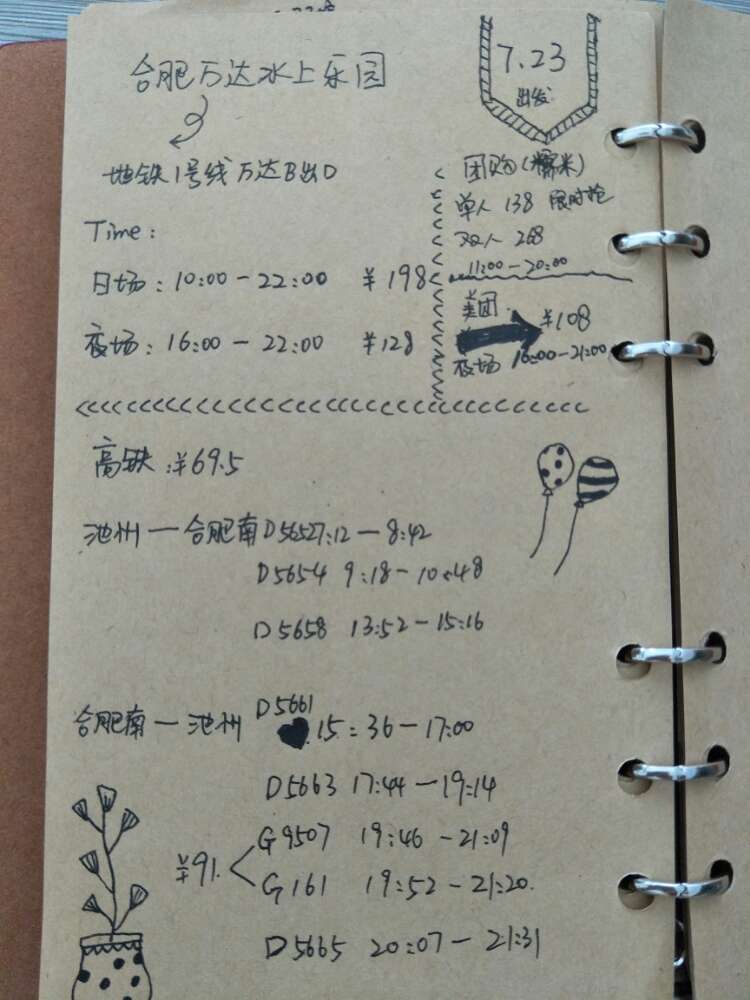 7.23
出发
合肥万达水上乐园
地铁1号线万达B出口
Time:
日场:10:00-22:00 ¥198
夜场:16:00-22:00 ¥128
团购(糯米)
单人 138 限时抢
双人 268
11:00-20:00
美团
¥108
夜场 16:00-21:00
高铁:¥69.5
池州—合肥南D5652 7:12-8:42
D5654 9:18-10:48
D5658 13:52-15:16
合肥南—池州 D5661
15:36-17:00
D5663 17:44-19:14
¥91. G9507 19:46-21:09
G161 19:52-21:20.
D5665 20:07-21:31